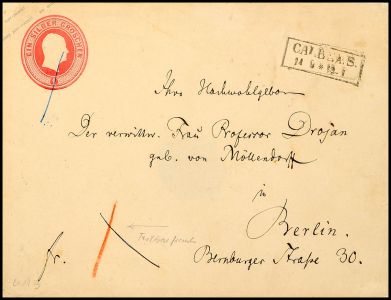 EIN SILBER GROSCHEN
CALBE A.S.
14 9
Ihro Hochwohlgebor
Der verwittw. Frau Professor Drojan
geb. von Möllendorff
in
Berlin.
Bernburger Straße 30.
fr.